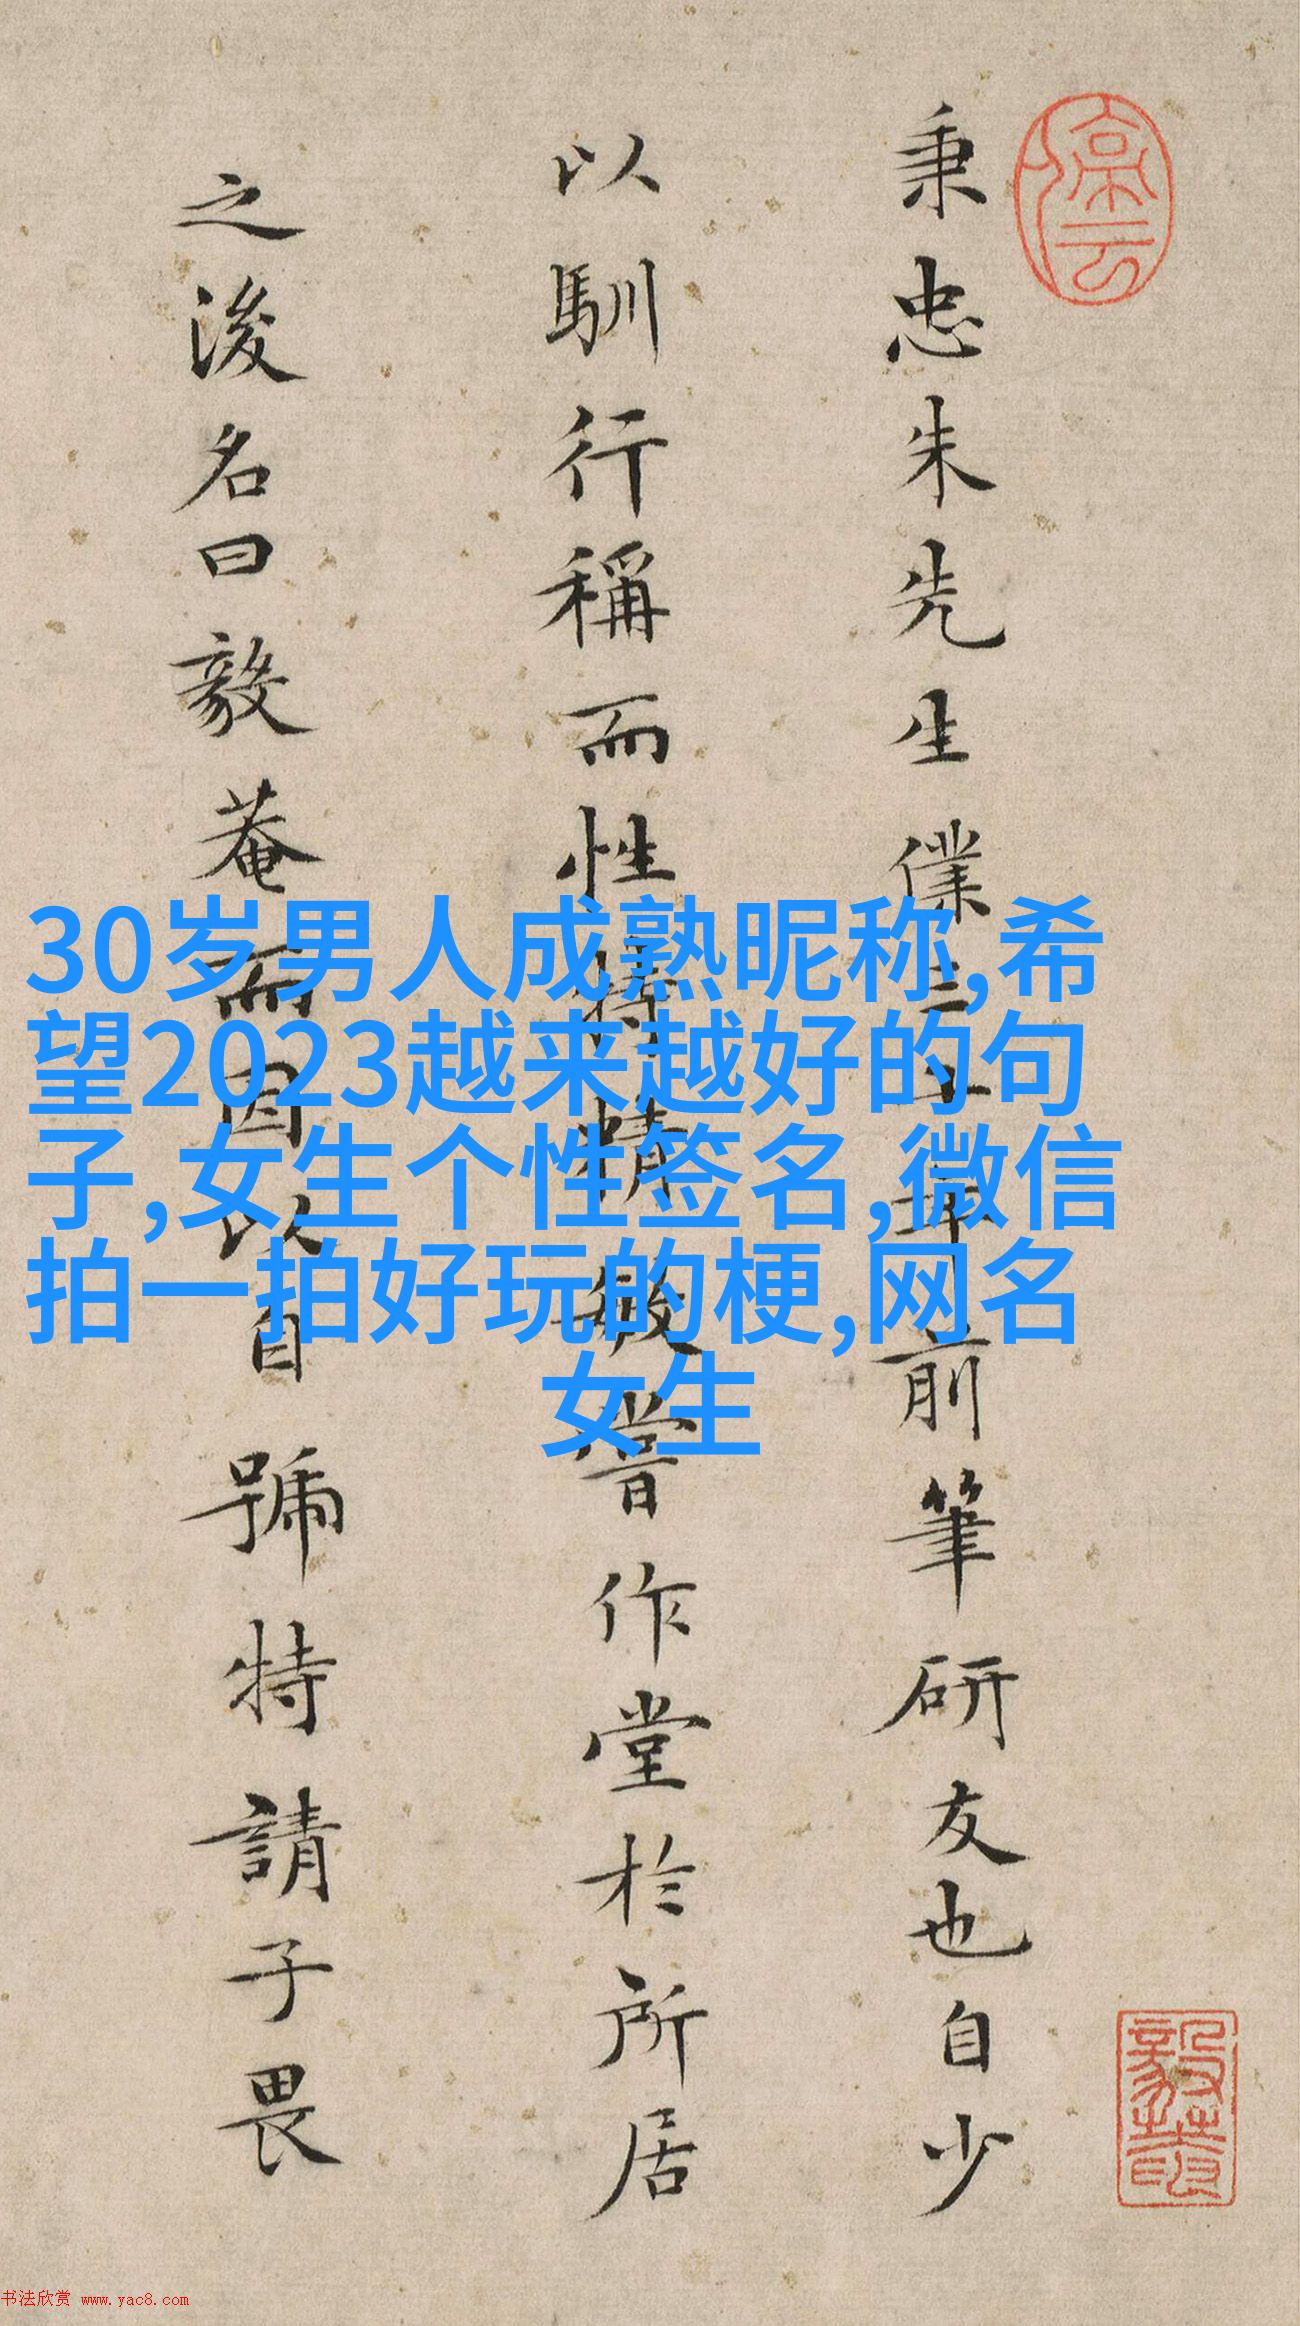 停云
秉忠朱先生僕三十年前筆研友也自少
以馴行稱而性特精敏嘗作堂於所居
之後名曰毅菴而因以自號特請子畏
30岁男人成熟昵称,希
望2023越来越好的句
子,女生个性签名,微信
拍一拍好玩的梗,网名
女生
书法欣赏 www.yac8.com